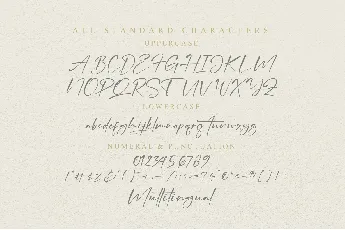 ALL STANDARD CHARACTERS
UPPERCASE
ABCDEFGHIJKLM
NOPQRSTUVWXYZ
LOWERCASE
abcdefghijklmnopqrstuvwxyz
NUMERAL & PUNCTUATION
0123456789
Multilingual